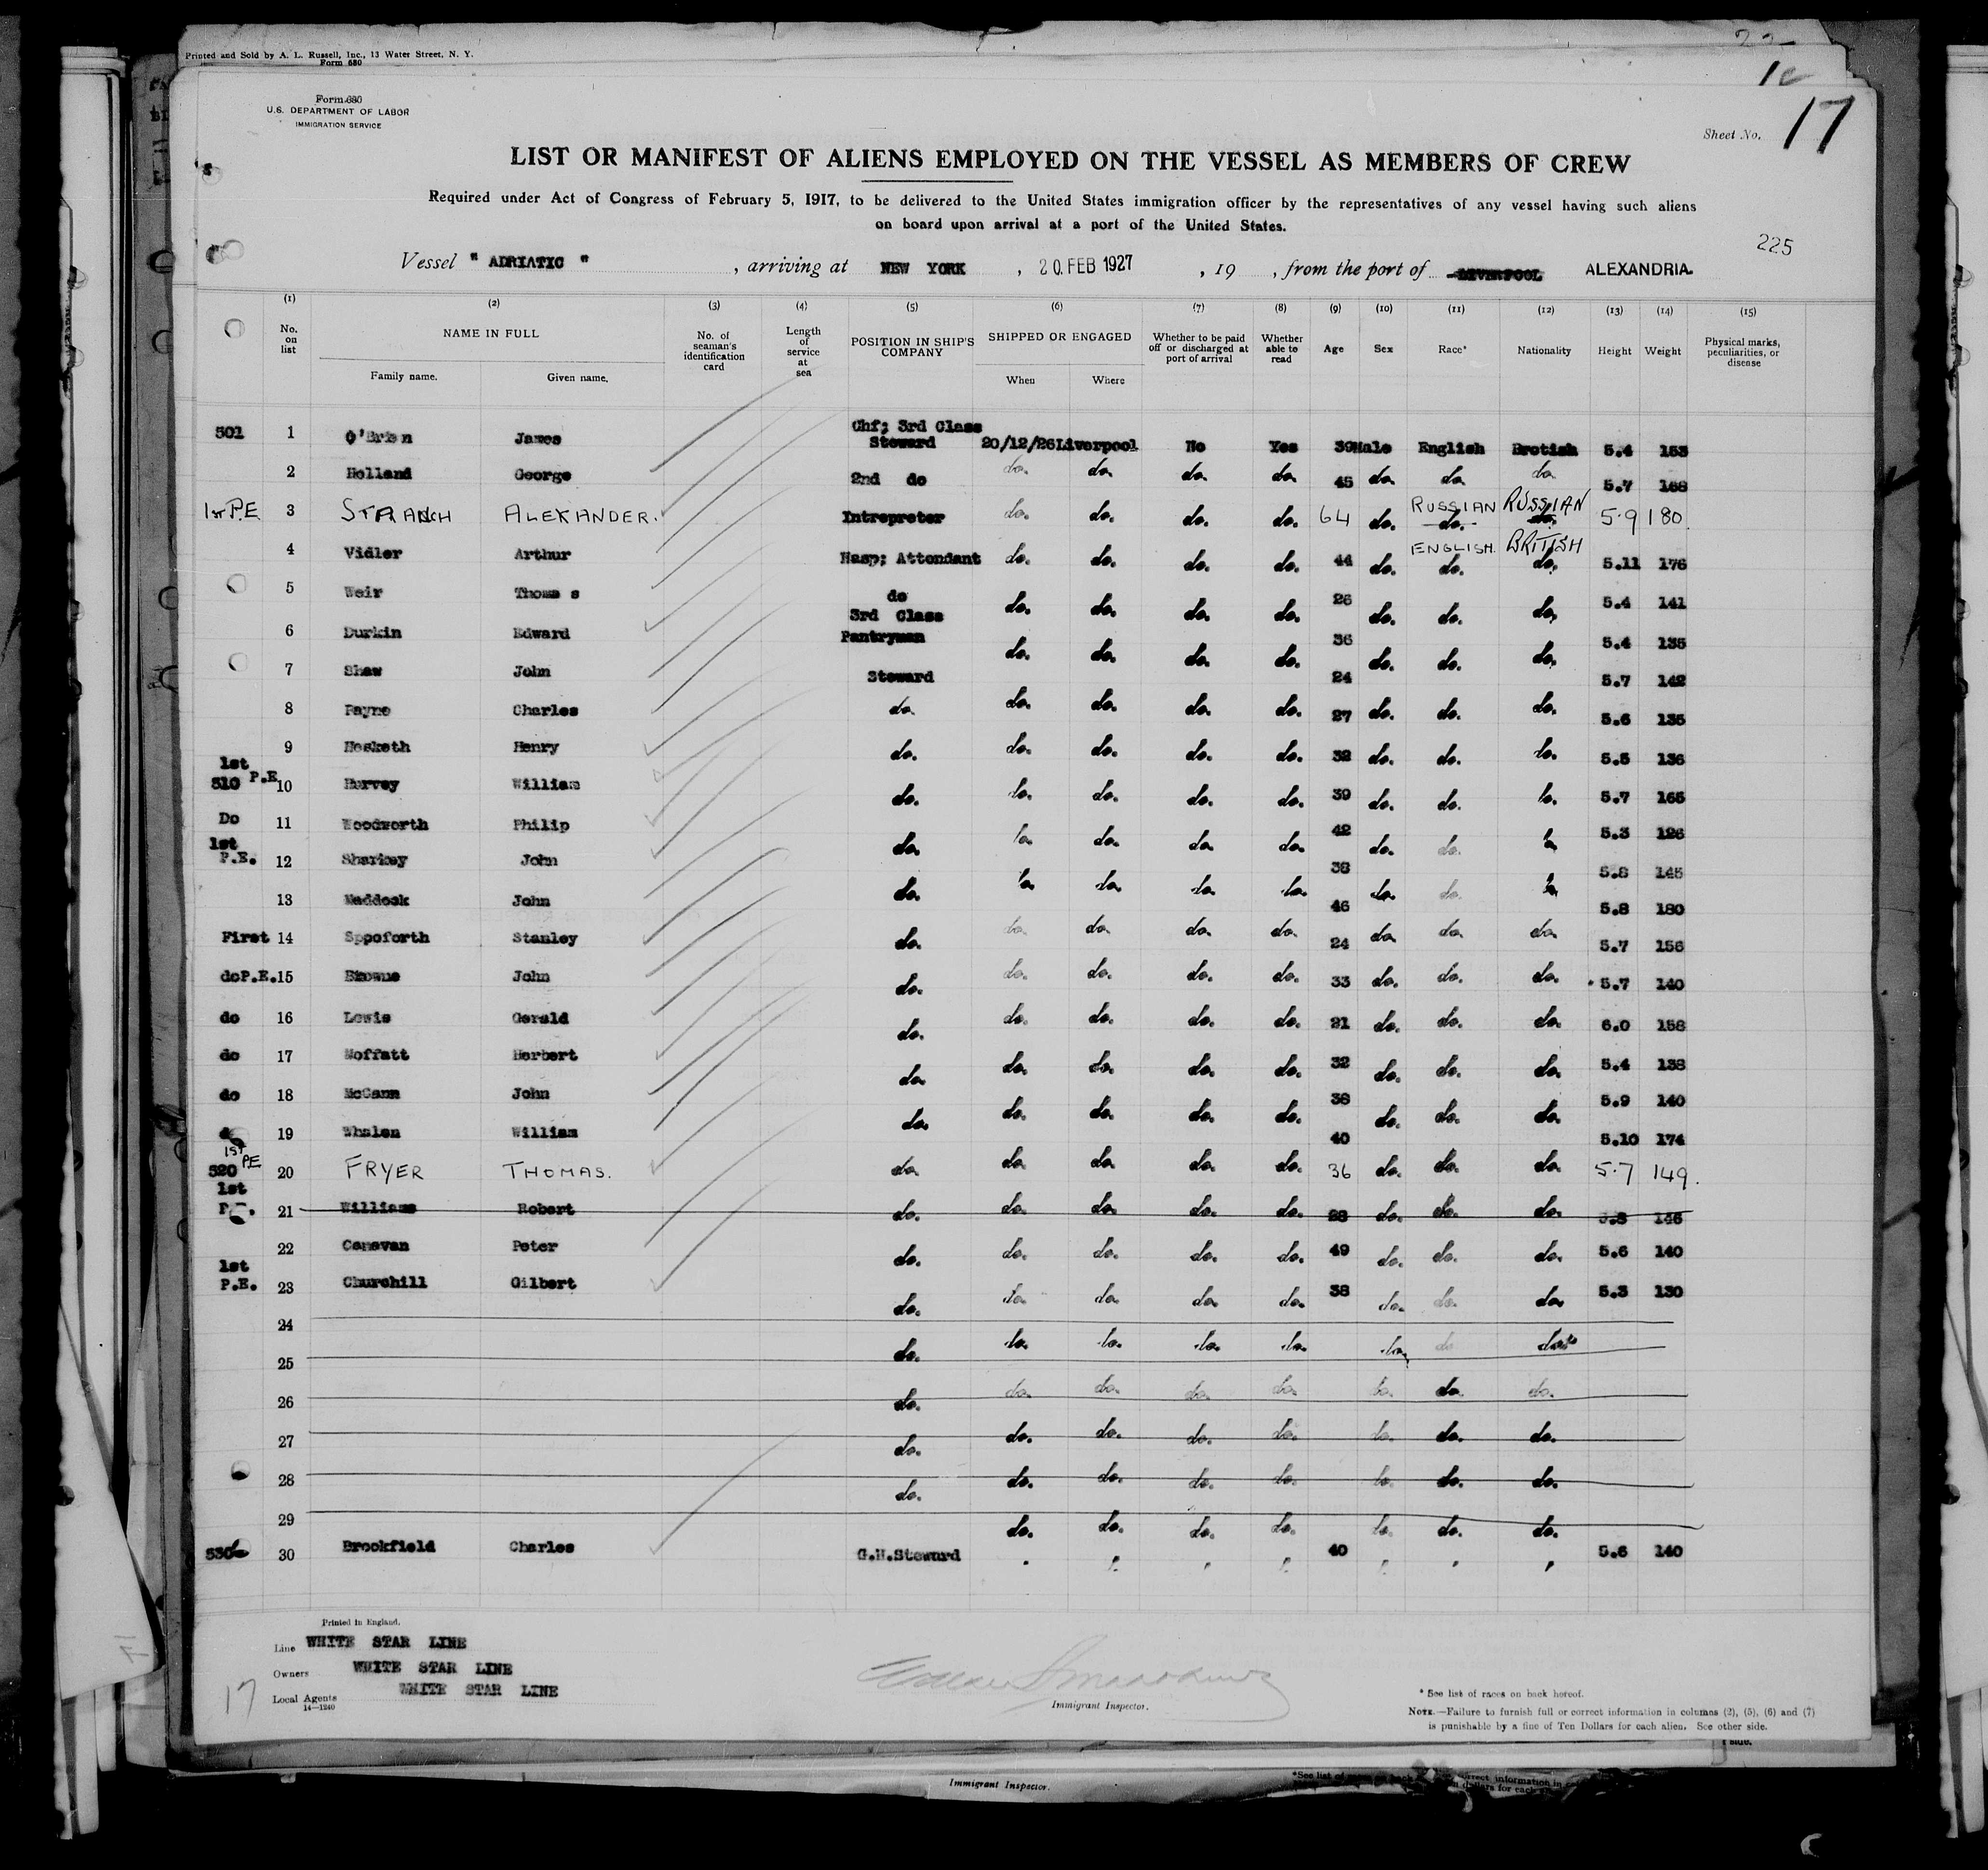 Printed and Sold by A. L. Russell, Inc., 13 Water Street, N. Y.
Form 680
Form 680
U.S. DEPARTMENT OF LABOR
IMMIGRATION SERVICE
Sheet No. 17
LIST OR MANIFEST OF ALIENS EMPLOYED ON THE VESSEL AS MEMBERS OF CREW
Required under Act of Congress of February 5, 1917, to be delivered to the United States immigration officer by the representatives of any vessel having such aliens
on board upon arrival at a port of the United States.
225
Vessel " ADRIATIC " , arriving at NEW YORK , 20 FEB 1927 , 19 , from the port of LIVERPOOL ALEXANDRIA.
(1) No. on list (2) NAME IN FULL Family name. Given name. (3) No. of seaman's identification card (4) Length of service at sea (5) POSITION IN SHIP'S COMPANY (6) SHIPPED OR ENGAGED When Where (7) Whether to be paid off or discharged at port of arrival (8) Whether able to read (9) Age (10) Sex (11) Race* (12) Nationality (13) Height (14) Weight (15) Physical marks, peculiarities, or disease
501 1 O'Brien James Chf; 3rd Class Steward 20/12/26 Liverpool No Yes 39 Male English Brotish 5.4 153
2 Holland George 2nd do do. do. do. do. 45 do. do. do. 5.7 168
1st P.E 3 STRANCH ALEXANDER. Intrepreter do. do. do. do. 64 do. RUSSIAN do. RUSSIAN do. 5.9 180.
4 Vidler Arthur Hasp; Attendant do. do. do. do. 44 do. ENGLISH. do. BRITISH do. 5.11 176
5 Weir Thomas do do. do. do. do. 26 do. do. do. 5.4 141
6 Durkin Edward 3rd Class Pantryman do. do. do. do. 36 do. do. do. 5.4 135
7 Shaw John Steward do. do. do. do. 24 do. do. do. 5.7 142
8 Payne Charles do. do. do. do. do. 27 do. do. do. 5.6 135
9 Hesketh Henry do. do. do. do. do. 32 do. do. do. 5.5 136
1st P.E. 510 10 Harvey William do. do. do. do. do. 39 do. do. do. 5.7 165
Do 11 Woodworth Philip do. do. do. do. do. 42 do. do. do. 5.3 126
1st P.E. 12 Sharkey John do. do. do. do. do. 38 do. do. do. 5.8 145
13 Maddock John do. do. do. do. do. 46 do. do. do. 5.8 180
First 14 Sppoforth Stanley do. do. do. do. do. 24 do. do. do. 5.7 156
do P.E. 15 Browne John do. do. do. do. do. 33 do. do. do. 5.7 140
do 16 Lewis Gerald do. do. do. do. do. 21 do. do. do. 6.0 158
do 17 Moffatt Herbert do. do. do. do. do. 32 do. do. do. 5.4 138
do 18 McCann John do. do. do. do. do. 38 do. do. do. 5.9 140
19 Whalen William 40 5.10 174
1ST PE 520 20 FRYER THOMAS. do. do. do. do. do. 36 do. do. do. 5.7 149.
1st P.E. 21 Williams Robert do. do. do. do. do. 28 do. do. do. 5.8 146
22 Canavan Peter do. do. do. do. do. 49 do. do. do. 5.6 140
1st P.E. 23 Churchill Gilbert do. do. do. do. do. 38 do. do. do. 5.3 130
24 do. do. do. do. do. do. do. do.
25
26 do. do. do. do. do. do. do. do.
27 do. do. do. do. do. do. do. do.
28 do. do. do. do. do. do. do. do.
29 do. do. do. do. do. do. do.
530 30 Brookfield Charles G.H.Steward 40 5.6 140
Printed in England.
Line WHITE STAR LINE
Owners WHITE STAR LINE
Local Agents WHITE STAR LINE
14—1240
17
Immigrant Inspector.
* See list of races on back hereof.
NOTE.—Failure to furnish full or correct information in columns (2), (5), (6) and (7)
is punishable by a fine of Ten Dollars for each alien. See other side.
Immigrant Inspector.